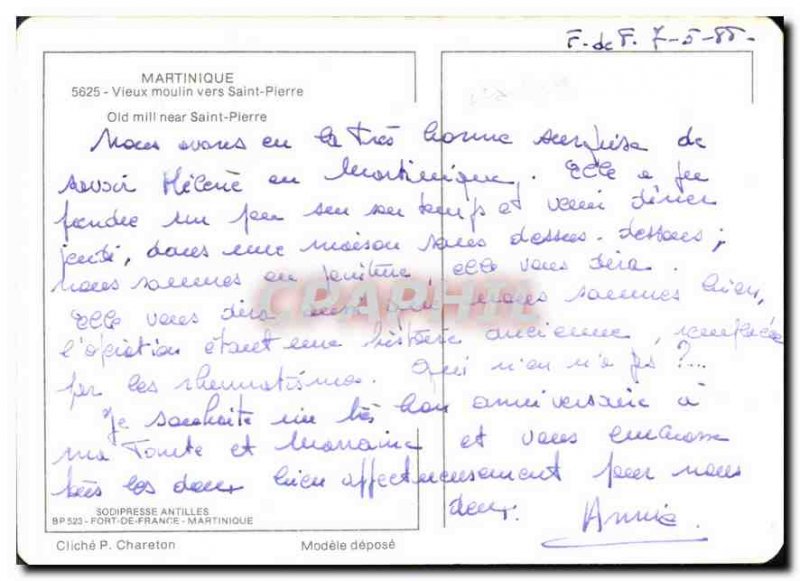 F. de F. 7-5-85-
MARTINIQUE
5625 - Vieux moulin vers Saint-Pierre
Old mill near Saint-Pierre
Nous avons eu la très bonne surprise de
savoir Hélène en Martinique. Elle a pu
prendre un peu sur son temps et venir dîner
jeudi, dans une maison sans dessus-dessous ;
nous sommes en peinture elle vous dira.
Elle vous dira aussi que nous sommes bien,
l'opération étant une histoire ancienne, remplacée
par les rhumatismes. Qui n'en n'a pas ?...
Je souhaite un très bon anniversaire à
ma Tante et Marraine et vous embrasse
tous les deux bien affectueusement pour nous
deux. Annie.
CPARPHIL
SODIPRESSE ANTILLES
BP 523 - FORT-DE-FRANCE - MARTINIQUE
Cliché P. Chareton
Modèle déposé